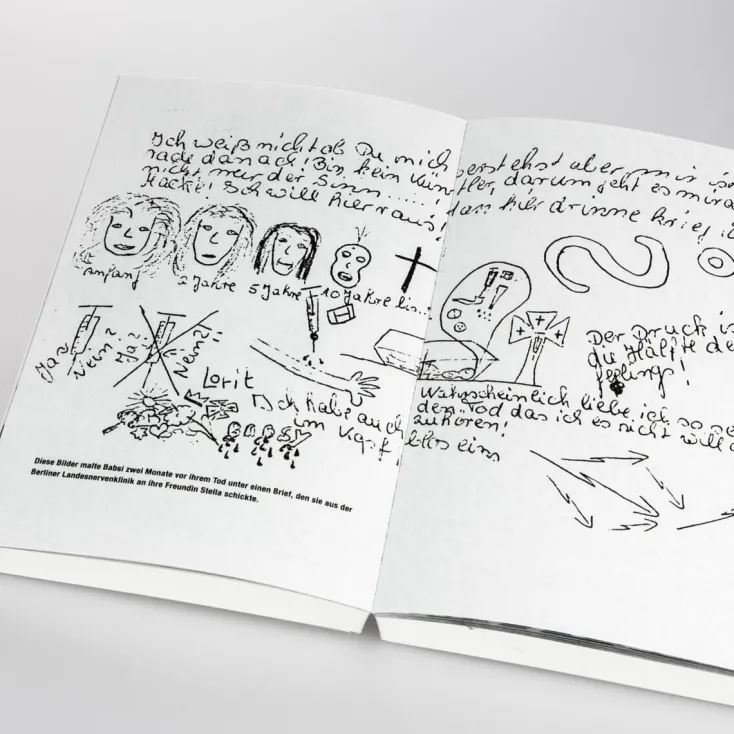 Ich weiß nicht ob Du mich verstehst aber mir is
danach! Bin kein Küns tler, darum geht es mir a
nicht mehr der Sinn.....! dan hier drinne krieg i
Macke! Ich will hier raus!
Anfang
2 Jahre 5 Jahre 10 Jahre bis...
Ja? Nein? Ja? Nein?
Lorit
Ich habe auch
im Kopf
Der Druck is
die Hälfte de
feelings!
Wahrscheinlich liebe ich so se
den Tod das ich es nicht will
zuhören!
blos eins
Diese Bilder malte Babsi zwei Monate vor ihrem Tod unter einen Brief, den sie aus der
Berliner Landesnervenklinik an ihre Freundin Stella schickte.